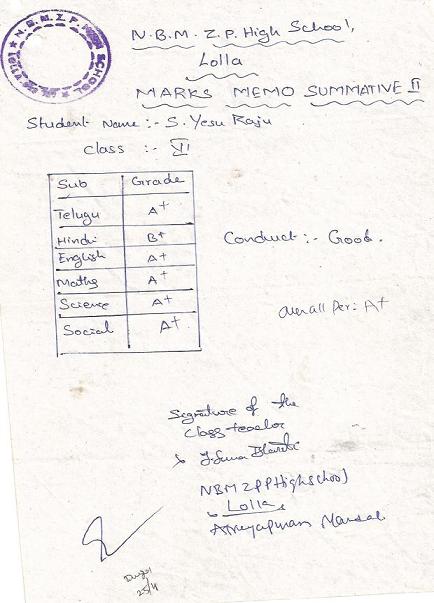 N.B.M. Z.P. HIGH SCHOOL
LOLLA
N.B.M. Z.P. High School,
Lolla
MARKS MEMO SUMMATIVE II
Student Name :- S. Yesu Raju
class :- VI
Sub Grade
Telugu A+
Hindi B+
English A+
Maths A+
Science A+
Social A+
Conduct :- Good.
overall Per : A+
Signature of the
Class teacher
NBM ZPP High school
Lolla,
Atreyapuram Mandal
25/4